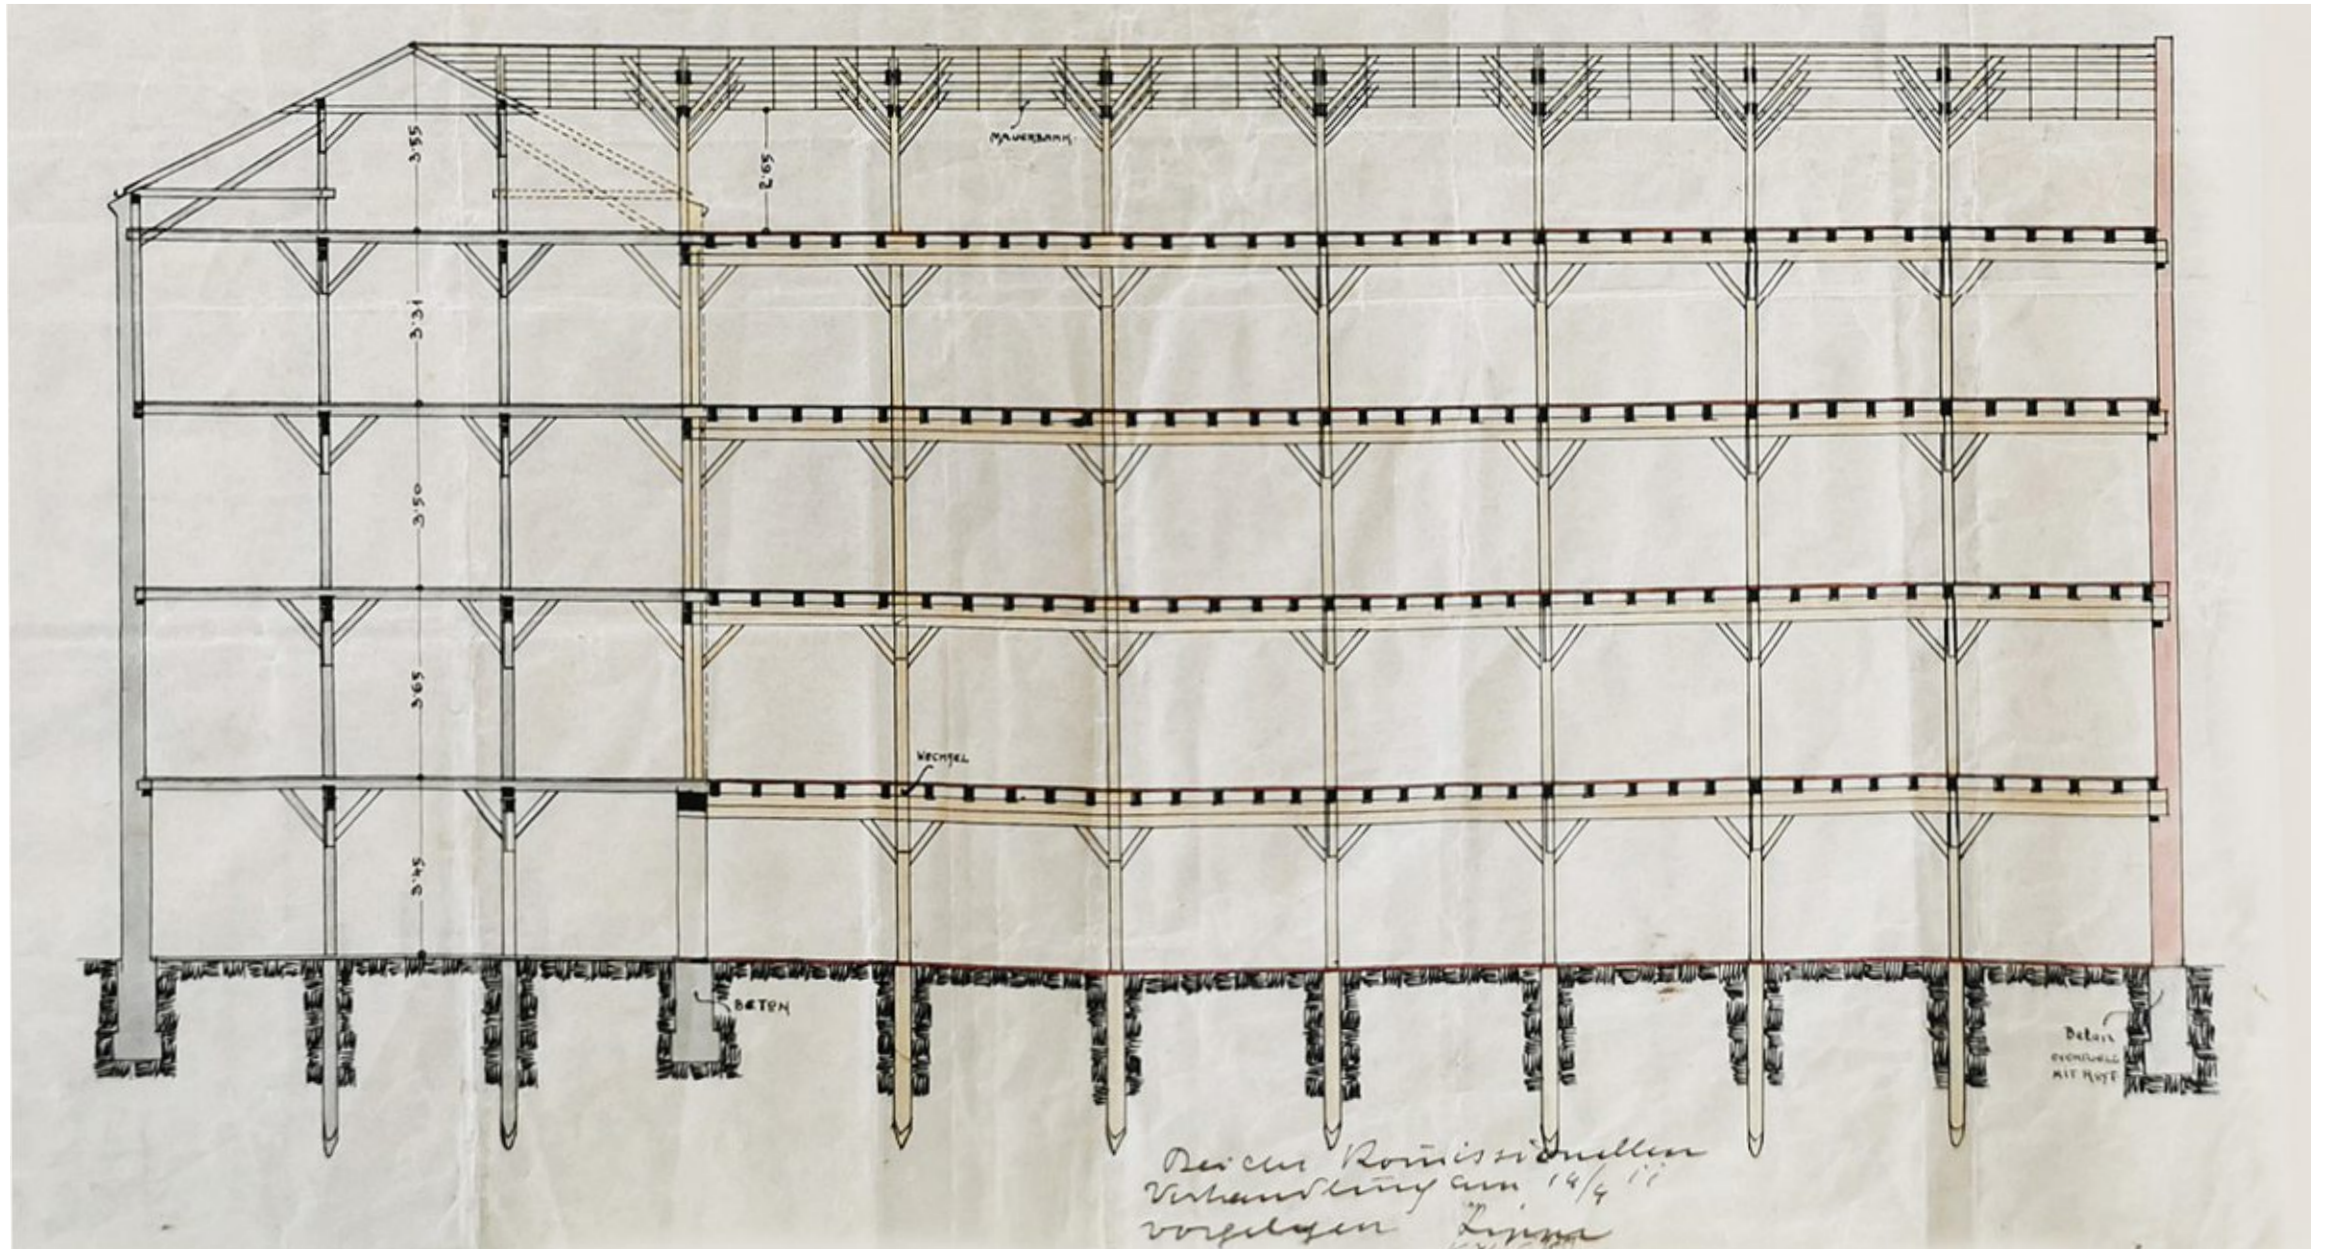 MAUERBANK
3·55
2·65
3·31
3·50
3·65
WECHSEL
3·45
BETON
Beton
EVENTUELL
MIT
Bei der Komissionellen
Verhandlung am 14/4 11
vorgelegen